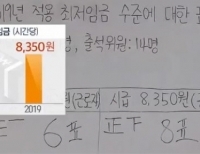 19년 적용 최저임금 수준에 대한
임금 (시간당)
8,350원
명, 출석위원: 14명
2019
(근로자
시급 8,350원
6표
正下 8표